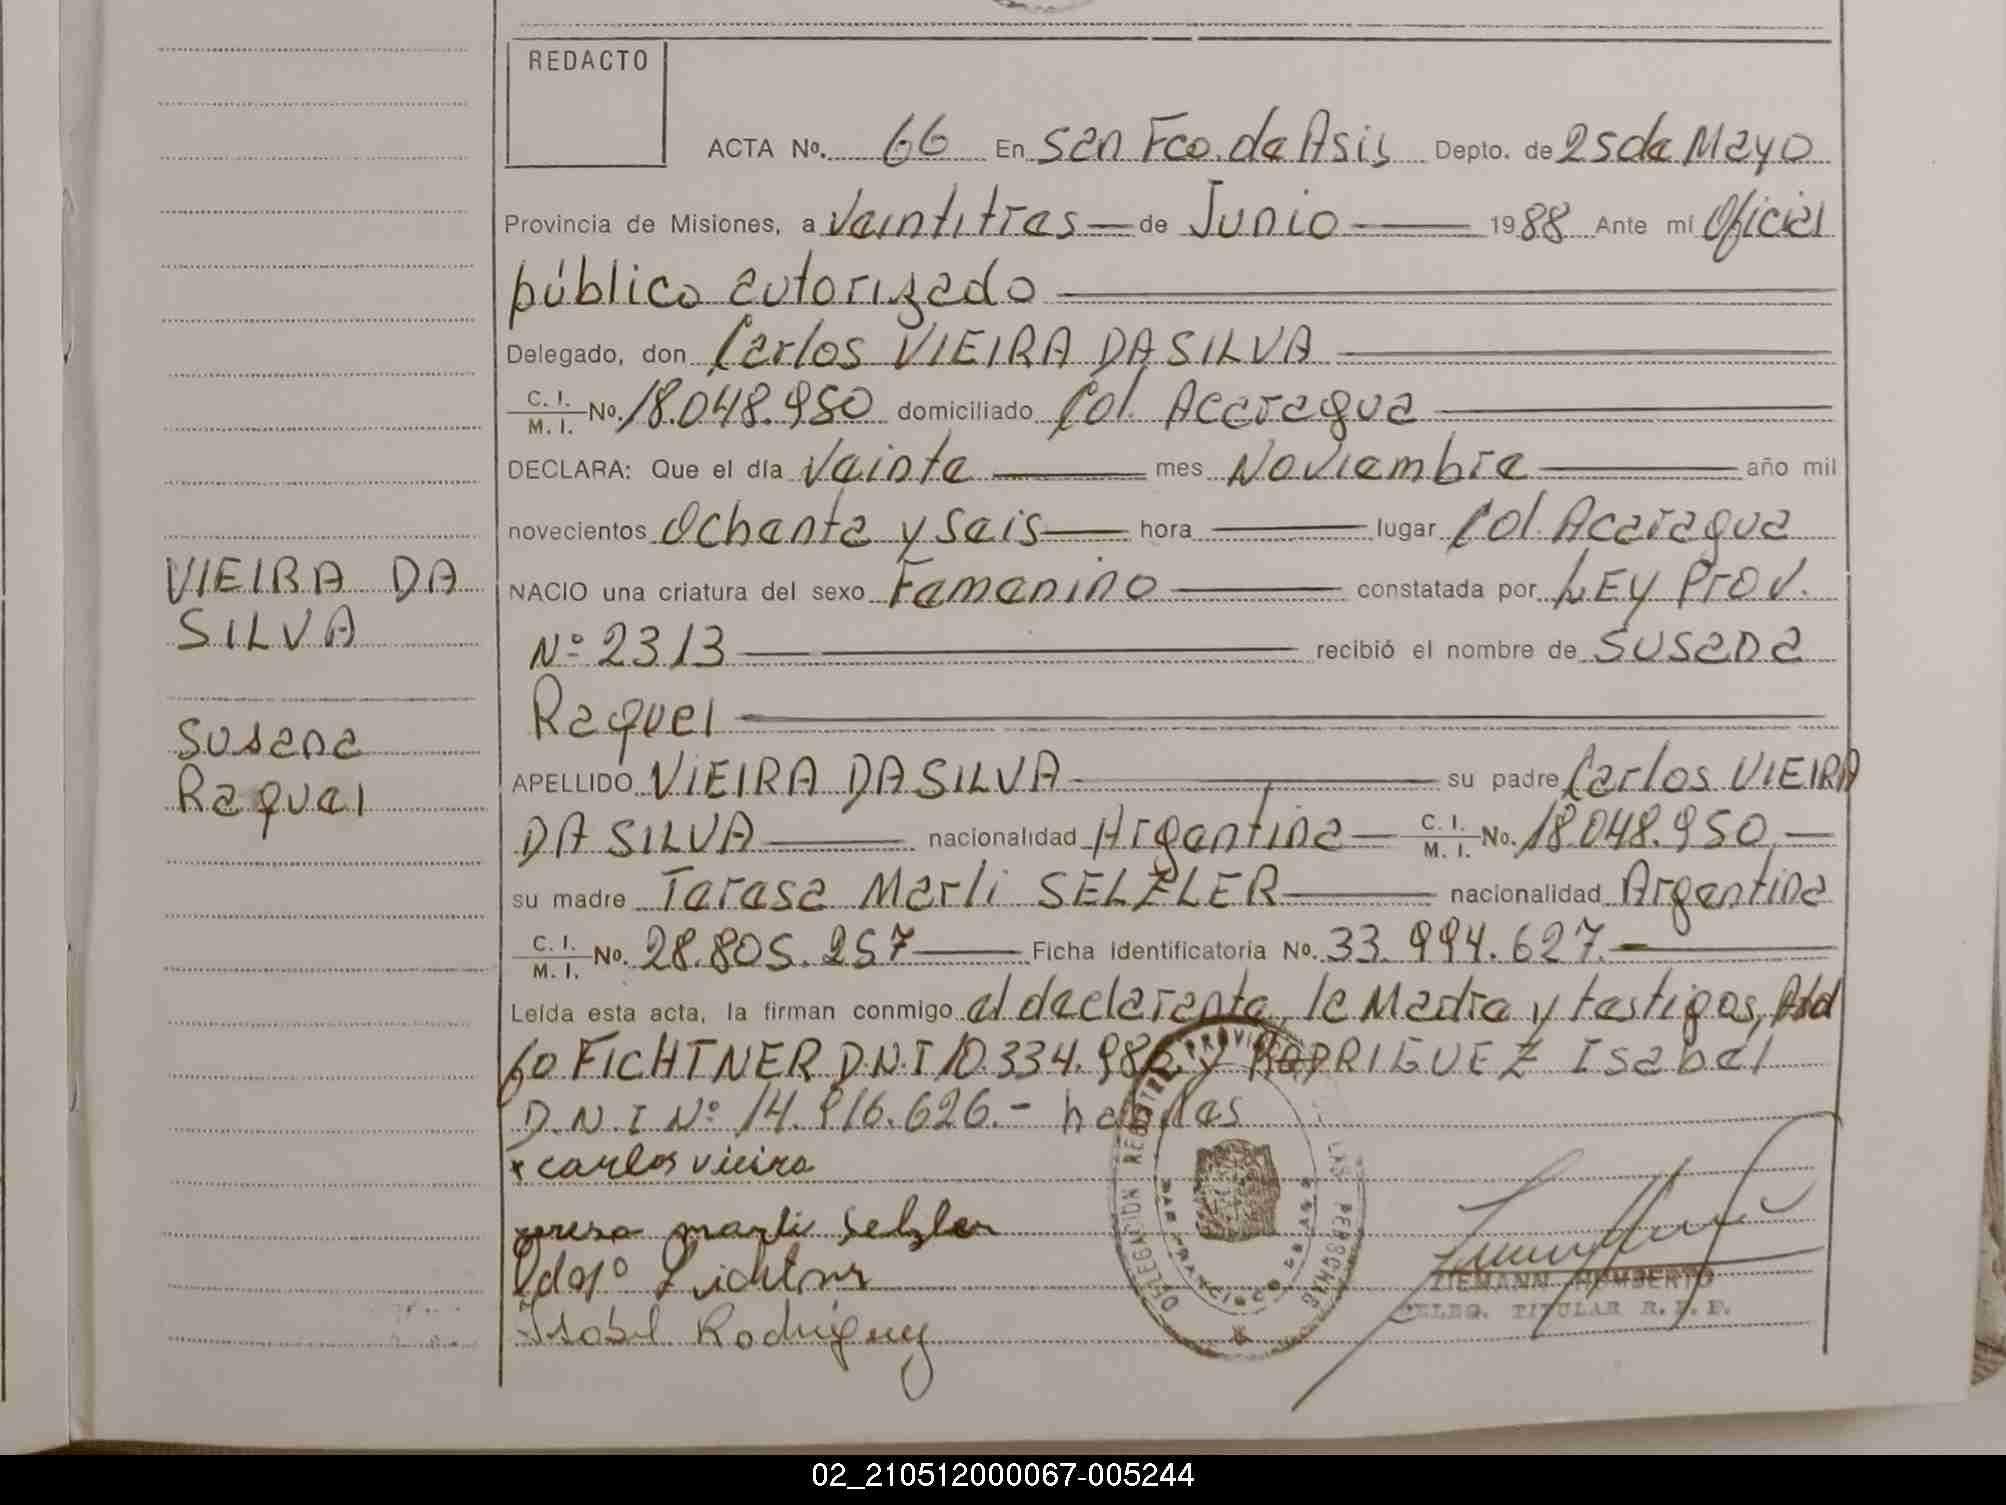 REDACTO
ACTA No. 66 En San Fco. de Asis Depto. de 25 de Mayo
Provincia de Misiones, a Veintitres de Junio 1988 Ante mí Oficial
público autorizado
Delegado, don Carlos VIEIRA DA SILVA
C. I. M. I. No. 18.048.950 domiciliado Col. Acaragua
DECLARA: Que el día Veinte mes Noviembre año mil
novecientos Ochenta y Seis hora lugar Col. Acaragua
NACIO una criatura del sexo Femenino constatada por LEY Prov.
Nº 2313 recibió el nombre de Susana
Raquel
APELLIDO VIEIRA DA SILVA su padre Carlos VIEIRA
DA SILVA nacionalidad Argentina C. I. M. I. No. 18.048.950
su madre Teresa Marli SELZLER nacionalidad Argentina
C. I. M. I. No. 28.805.257 Ficha Identificatoria No. 33.994.627.
Leída esta acta, la firman conmigo el declarante, la Madre y testigos, Ad
D.N.I 10.334.982 y RODRIGUEZ Isabel
D.N.I Nº 14.916.626.- habiles
x carlos vieira
teresa marli Selzler
Isabel Rodriguez
VIEIRA DA
SILVA
Susana
Raquel
DELEGACION REGISTRO PROVINCIAL DE LAS PERSONAS
SAN FRANCISCO DE ASIS
ZIEMANN HUMBERTO
DELEG. TITULAR R. P. P.
02_210512000067-005244